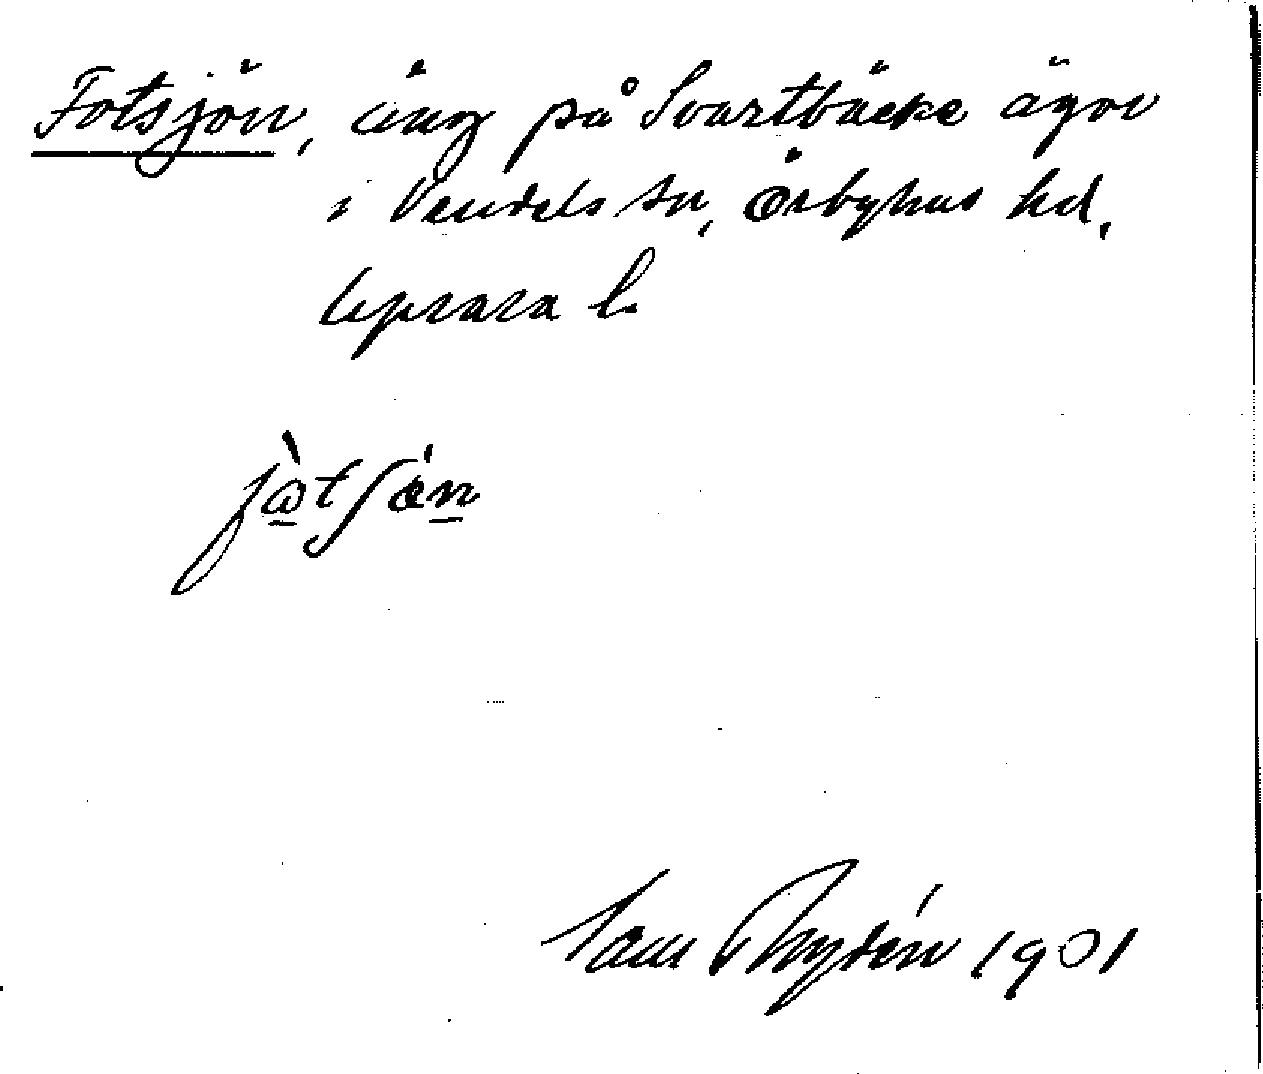 Fotsjön, äng på Svartbäcks ägor
i Vendels sn, Örbyhus hd,
Uppsala l.
Sam Rydén 1901